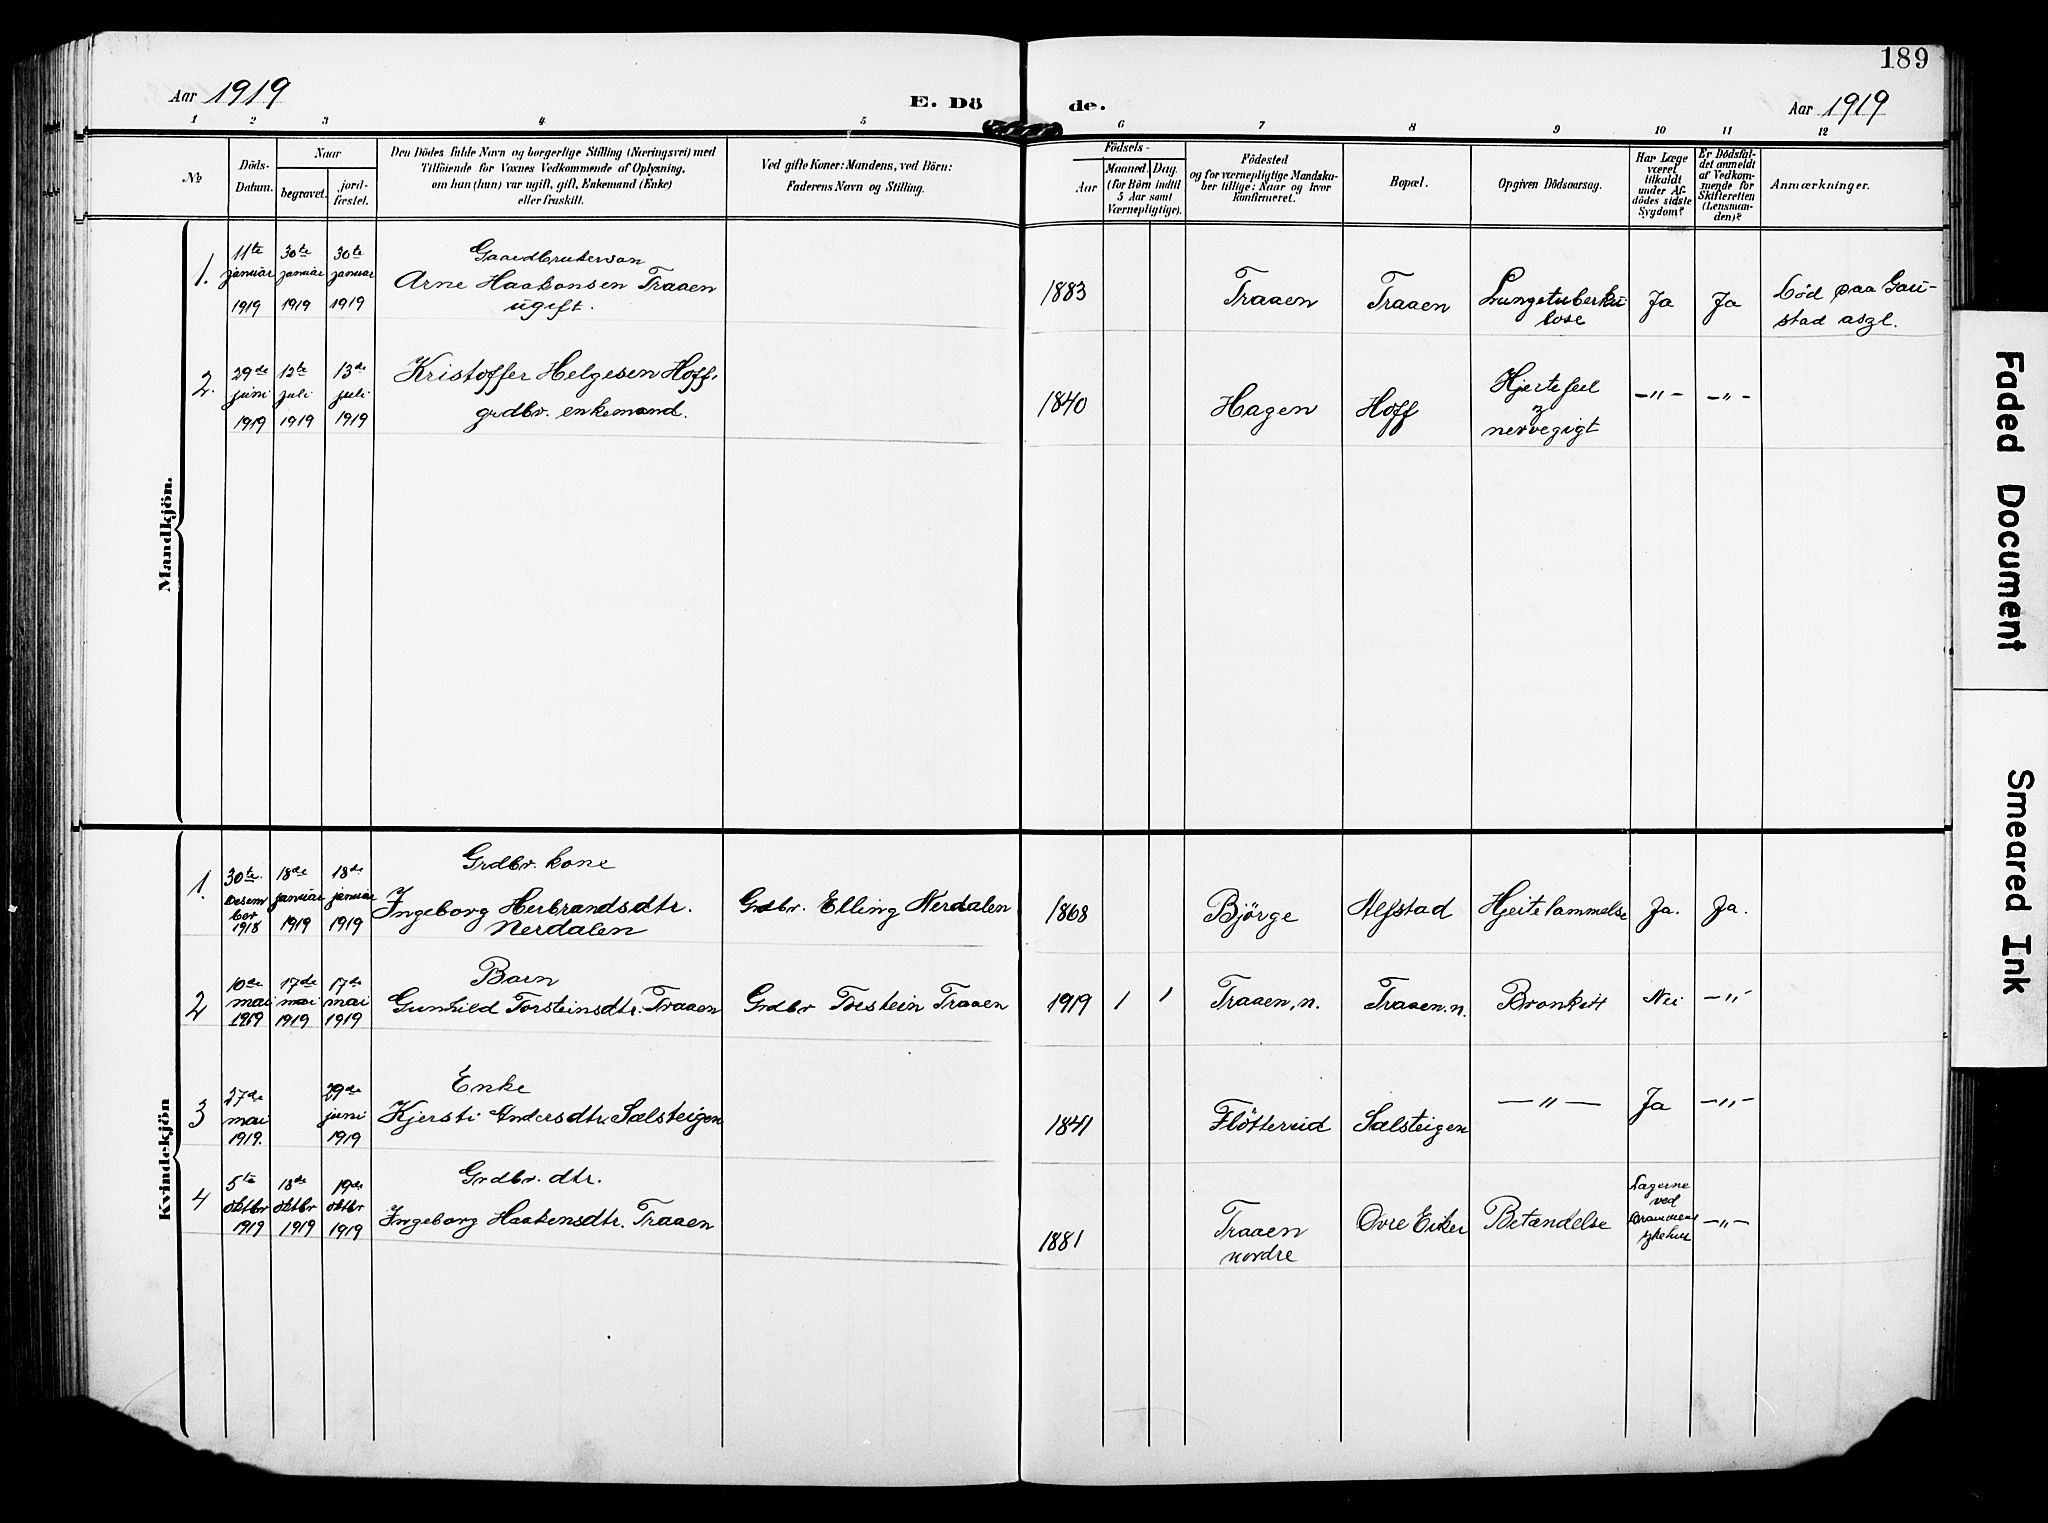 189
Aar 1919
E. Dö
de.
Aar 1919
1 2 3 4 5 6 7 8 9 10 11 12
№
Döds-
Datum.
Naar
begravet.
jord-
fæstet.
Den Dödes fulde Navn og borgerlige Stilling (Næringsvei) med
Tilföiende for Voxnes Vedkommende af Oplysning,
om han (hun) var ugift, gift, Enkemand (Enke)
eller fraskilt.
Ved gifte Koner: Mandens, ved Börn:
Faderens Navn og Stilling.
Födsels-
Aar
Maaned. Dag.
(for Börn indtil
5 Aar samt
Værnepligtige).
Födested
og for værnepligtige Mandska-
ber tillige: Naar og hvor
konfirmeret.
Bopæl.
Opgiven Dödsaarsag.
Har Læge
været
tilkaldt
under Af-
dödes sidste
Sygdom?
Er Dödsfal-
det anmeldt
af Vedkom-
mende for
Skifteretten
(Lensman-
den)?
Anmærkninger.
Mandkjön.
1.
11te
januar
1919
30te
januar
1919
30te
januar
1919
Gaardbrukersøn
Arne Haakonsen Traaen
ugift.
1883
Traaen
Traaen
Lungetuberku-
lose
Ja
Ja
Død paa Gau-
stad asyl.
2.
29de
juni
1919
13te
juli
1919
13de
juli
1919
Kristoffer Helgesen Hoff.
grdbr. enkemand.
1840
Hagen
Hoff
Hjertefeil
&
nervegigt
-"-
-"-
Kvindekjön
1.
30te
desem
ber
1918
18de
januar
1919
18de
januar
1919
Grdbr. kone
Ingeborg Herbrandsdtr.
Nerdalen
Grdbr. Elling Nerdalen
1868
Bjørge
Alfstad
Hjertelammelse
Ja.
Ja.
2
10de
mai
1919
17de
mai
1919
17de
mai
1919
Barn
Gunhild Torsteinsdtr. Traaen
Grdbr Torstein Traaen
1919
1
1
Traaen, n.
Traaen. n.
Bronkit
Nei
-"-
3
27de
mai
1919.
29de
juni
1919
Enke
Kjersti Andersdtr. Sælsteigen
1841
Fløtterud
Sælsteigen
-"-
Ja
-"-
4
5te
oktbr
1919
18de
oktbr
1919
19de
oktbr
1919
Grdbr. dtr.
Ingeborg Haakensdtr. Traaen
1881
Traaen
nordre
Øvre Eiker
Betændelse
Lægerne
ved
Drammens
sykehus
-"-
Faded Document
Smeared Ink